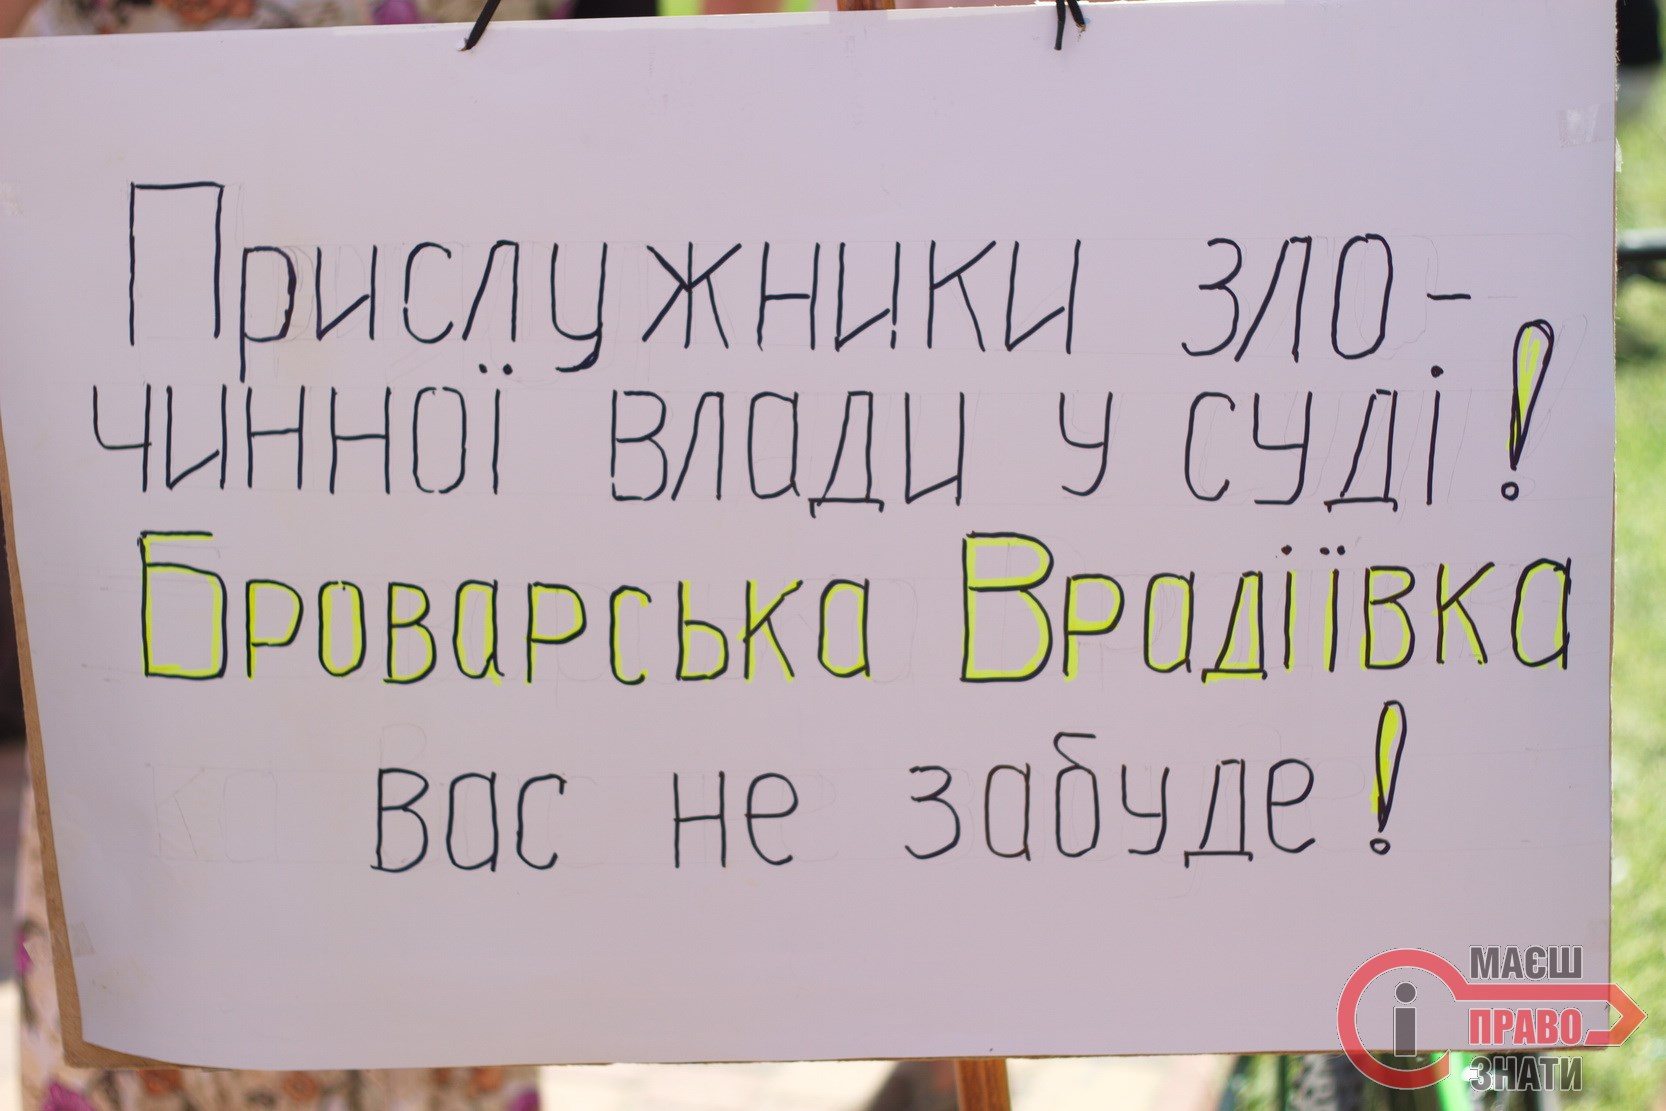 Прислужники зло-
чинної влади у суді!
Броварська Врадіївка
вас не забуде!
МАЄШ
ПРАВО
ЗНАТИ